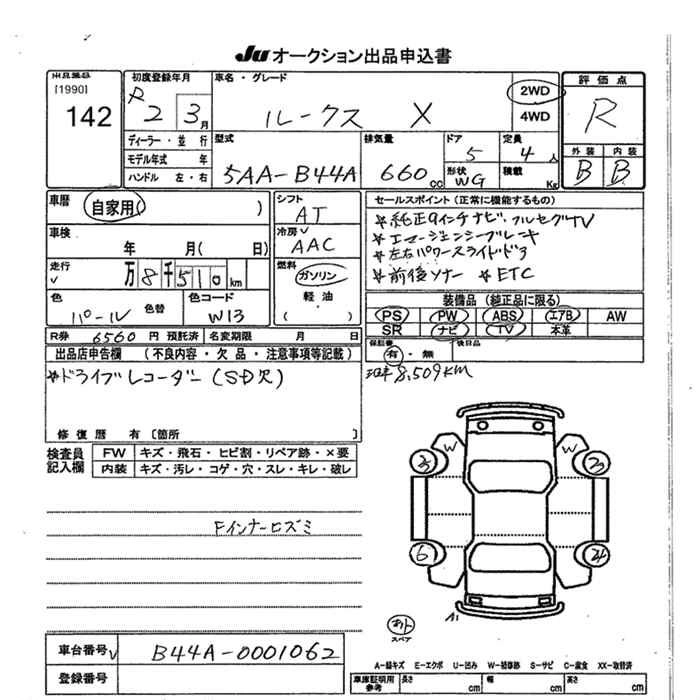 JU オークション出品申込書
出品番号
[1990]
142
初度登録年月
R 2 3 月
車名・グレード
ルークス X
2WD
4WD
評価点
R
外装 内装
B B
ディーラー・並行
モデル年式 年
ハンドル 左・右
型式
5AA-B44A
排気量
660 cc
ドア
5
形状
WG
定員
4 人
積載
Kg
車歴
自家用( )
車検
年 月( 日)
走行
万 8 千 510 km
色
パール
色替
色コード
W13
シフト
AT
冷房
AAC
燃料
ガソリン
軽油
( )
セールスポイント(正常に機能するもの)
☆純正9インチナビ、フルセグTV
☆エマージェンシーブレーキ
☆左右パワースライドドア
☆前後ソナー ☆ETC
装備品(純正品に限る)
PS PW ABS エアB AW
SR ナビ TV 本革
R券 6560 円 預託済 名変期限 月 日
保証書
有・無
後日品
出品店申告欄 (不良内容・欠品・注意事項等記載)
☆ドライブレコーダー(SD欠)
8,509KM
修復歴 有〔箇所 〕
検査員
記入欄
FW キズ・飛石・ヒビ割・リペア跡・×要
内装 キズ・汚レ・コゲ・穴・スレ・キレ・破レ
Fインナーヒズミ
W W
6
スペア
車台番号 B44A-0001062
登録番号
A−線キズ E−エクボ U−凹み W−補修跡 S−サビ C−腐食 XX−取替済
車庫証明用
参考
長さ cm 幅 cm 高さ cm